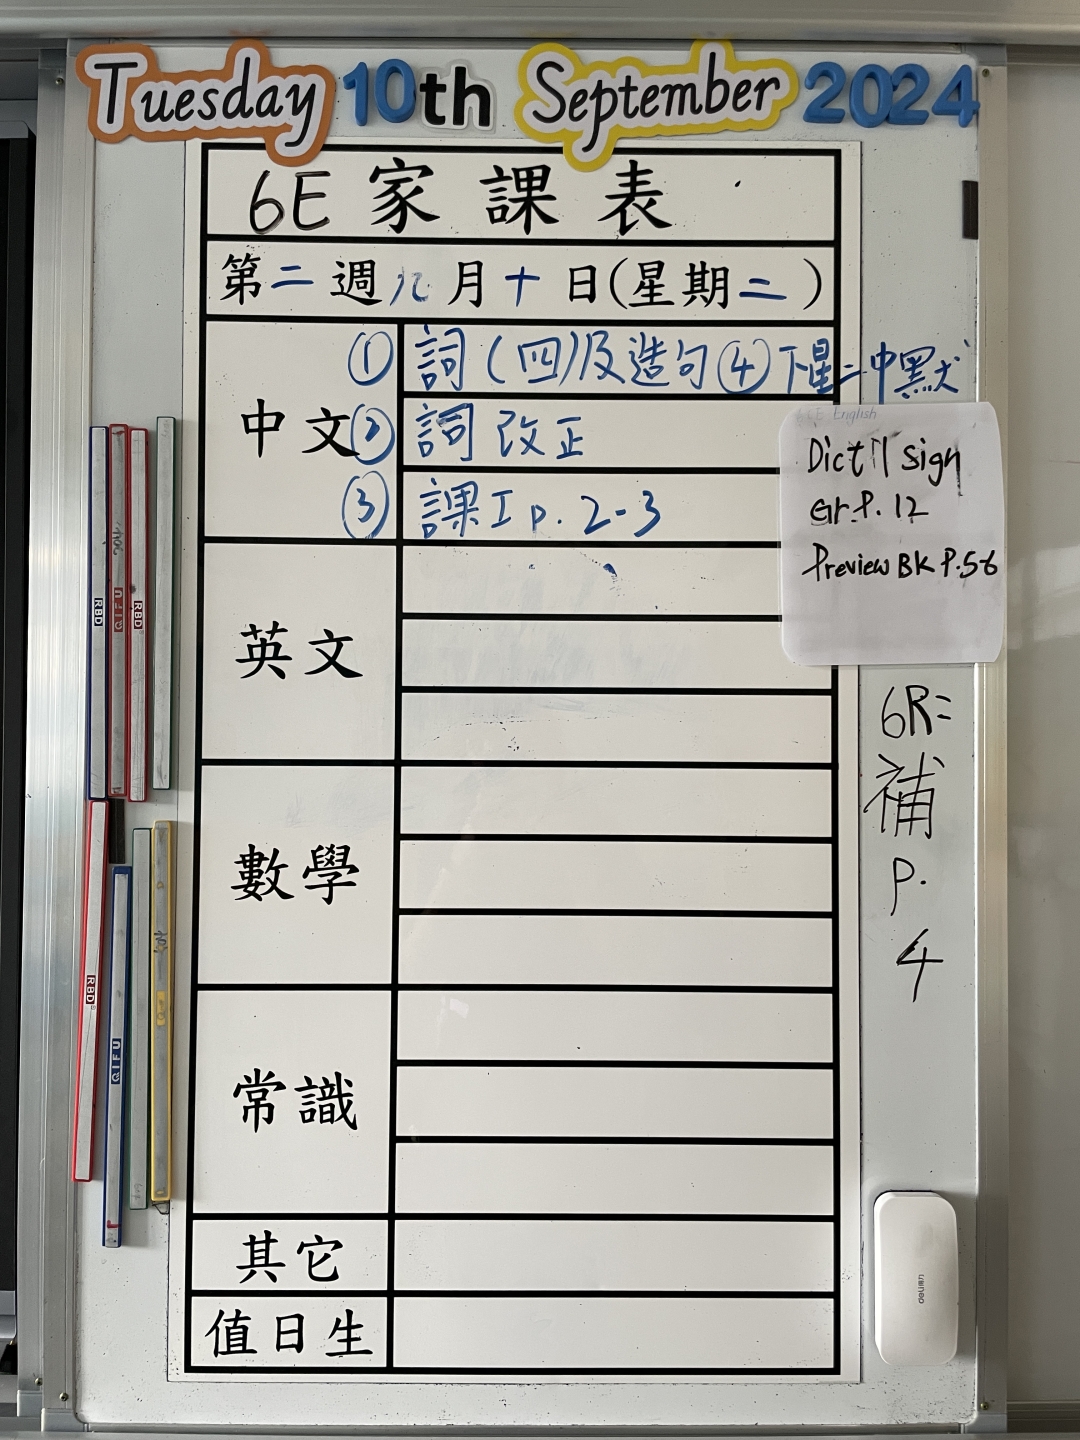 Tuesday 10th September 2024
6E 家課表
第二週九月十日(星期二)
中文
① 詞(四)及造句 ④下星二中默
② 詞改正
③ 課工 p. 2-3
6E English
Dict 1 sign
Gr. P. 12
Preview BK P.5-6
英文
6R:
補
P.
4
數學
常識
其它
值日生
RBD
QIFU
RBD
RBD
QIFU
deli得力